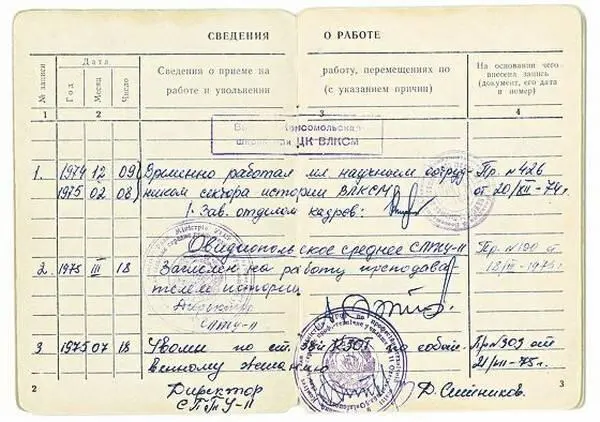 СВЕДЕНИЯ О РАБОТЕ
№ записи
Дата
Год
Месяц
Число
Сведения о приеме на работу, перемещениях по
работе и увольнении (с указанием причин)
На основании чего
внесена запись
(документ, его дата
и номер)
1 2 3 4
Комсомольская
ЦК ВЛКСМ
1. 1974 12 09 Временно работал мл. научным сотруд- Пр. №426
1975 02 08 ником сектора истории ВЛКСМ от 20/XII-74г.
Зав. отделом кадров:
Овидиопольское среднее СПТУ-11 Пр. №190
2. 1975 III 18 Зачислен на работу преподава- 18/III-1975г.
телем истории
Директор
СПТУ-11
3 1975 07 18 Уволен по ст. КЗОТ по собст- Пр №309 от
венному желанию 21/VII-75г.
Директор
СПТУ-11
2 3